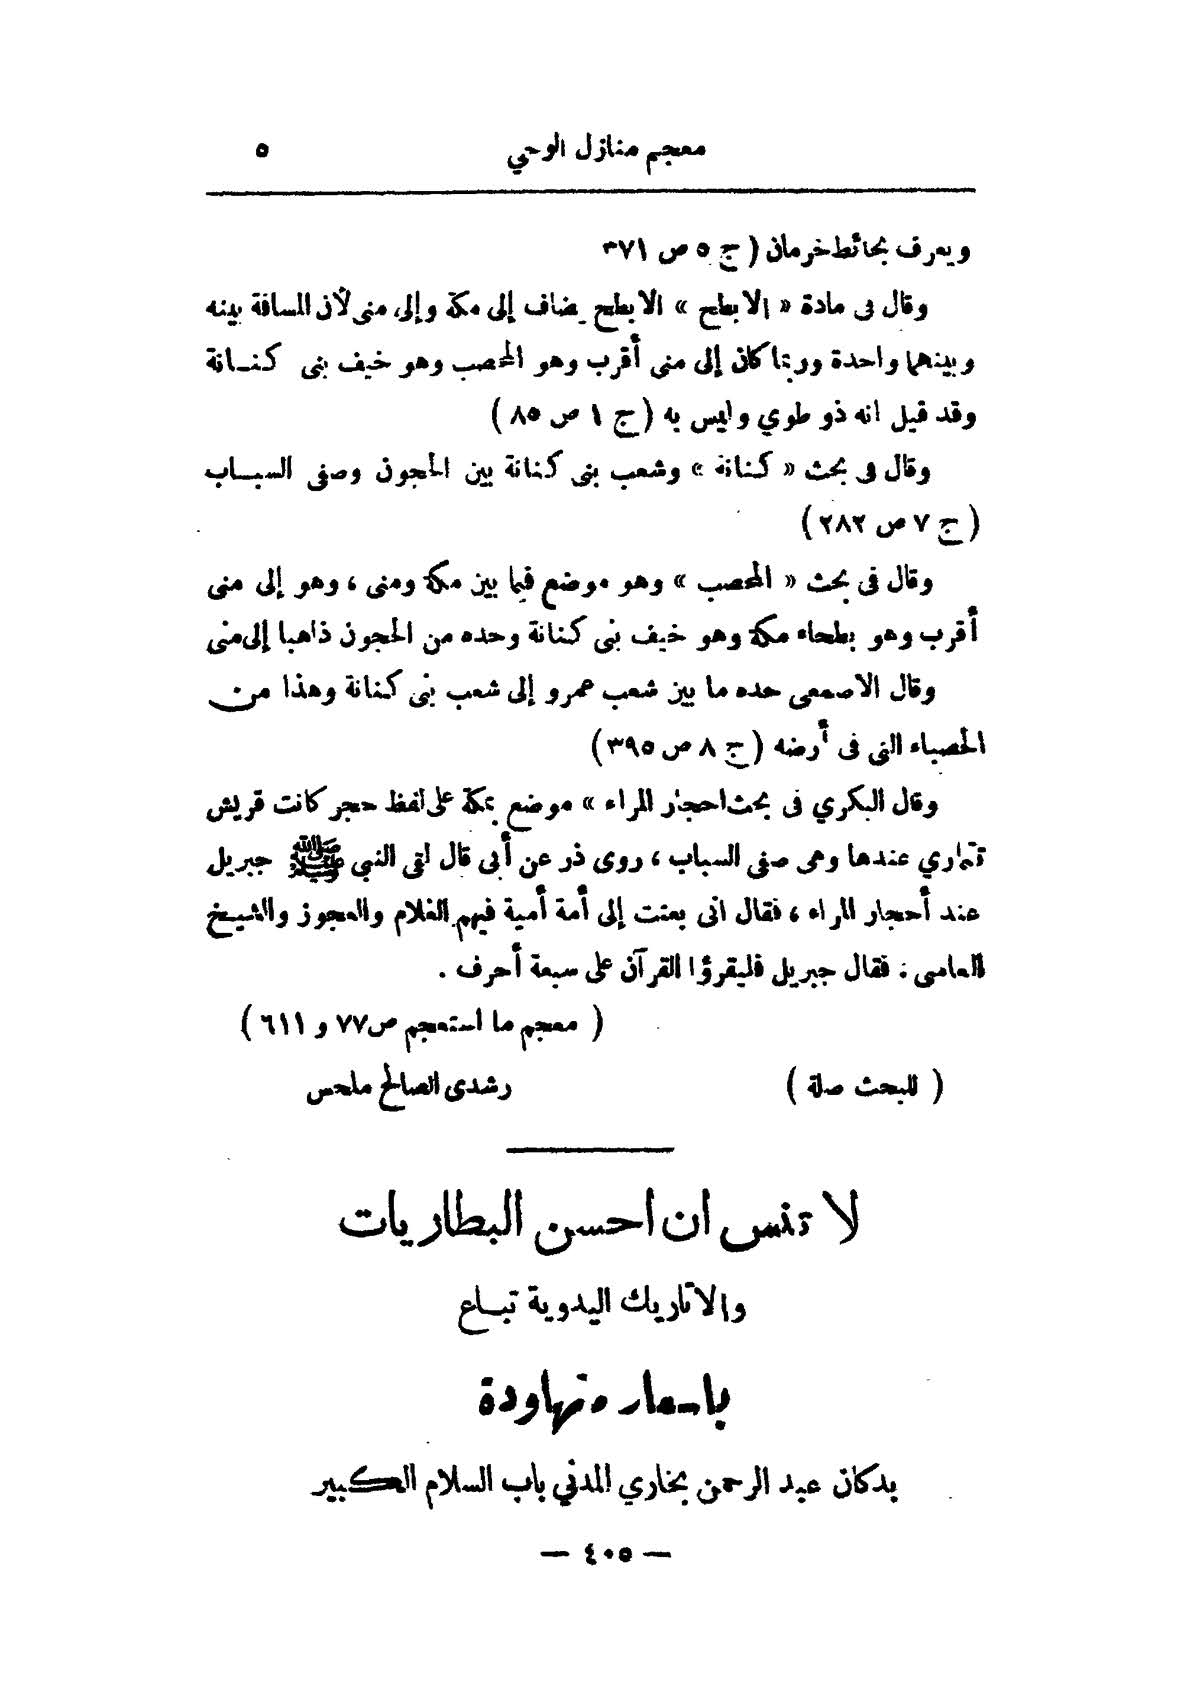 معجم منازل الوحي ٥
ويعرف بحائط خرمان ( ج ٥ ص ٣٧١
وقال فى مادة « الابطح » الابطح يضاف إلى مكة وإلى منى لأن المسافة بينه
وبينهما واحدة وربما كان إلى منى أقرب وهو المحصب وهو خيف بنى كنـانة
وقد قيل انه ذو طوي وليس به ( ج ١ ص ٨٥ )
وقال فى بحث « كنانة » وشعب بنى كنانة بين الحجون وصفى السبـاب
( ج ٧ ص ٢٨٢ )
وقال فى بحث « المحصب » وهو موضع فيما بين مكة ومنى ، وهو إلى منى
أقرب وهو بطحاء مكة وهو خيف بنى كنانة وحده من الحجون ذاهبا إلى منى
وقال الاصمعى حده ما بين شعب عمرو إلى شعب بنى كنانة وهذا من
الحصباء التى فى أرضه ( ج ٨ ص ٣٩٥ )
وقال البكري فى بحث احجار المراء » موضع بمكة على لفظ حجر كانت قريش
تتمارى عندها وهى صفى السباب ، روى ذر عن أبى قال لقى النبى ﷺ جبريل
عند أحجار المراء ، فقال انى بعثت إلى أمة أمية فيهم الغلام والعجوز والشيخ
العاسى : فقال جبريل فليقرؤا القرآن على سبعة أحرف .
( معجم ما استعجم ص ٧٧ و ٦١١ )
( للبحث صلة ) رشدى الصالح ملحس
لا تنس ان احسن البطاريات
والاتاريك اليدوية تبـاع
باسعار متهاودة
بدكان عبد الرحمن بخاري المدني باب السلام الكبير
— ٤٠٥ —